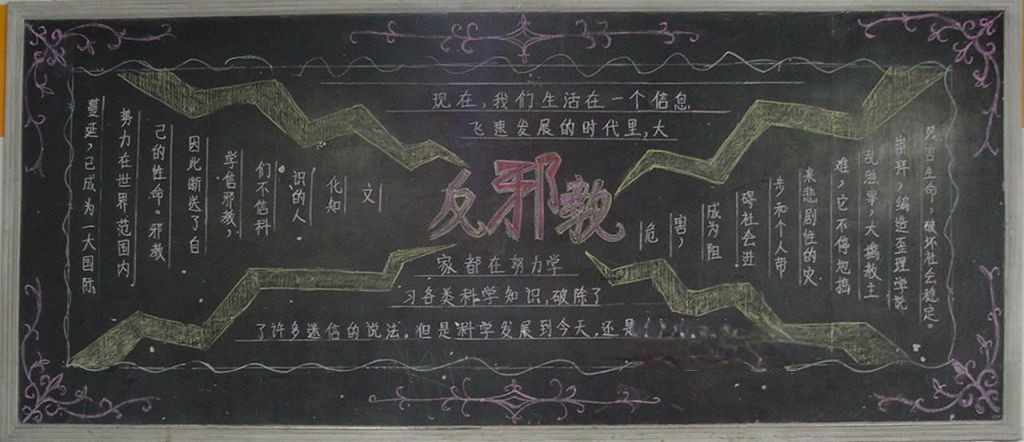 现在,我们生活在一个信息
飞速发展的时代里,大
反邪教
家都在努力学
习各类科学知识,破除了
了许多迷信的说法。但是科学发展到今天,还是
文
化知
识的人
们不信科
学信邪教,
因此断送了自
己的性命。邪教
努力在世界范围内
蔓延,已成为一大国际
危
害,
成为阻
碍社会进
步和个人带
来悲剧性的灾
难,它不停地捣
乱独尊,大搞教主
崇拜,编造歪理学
害生命,破坏社会稳定。